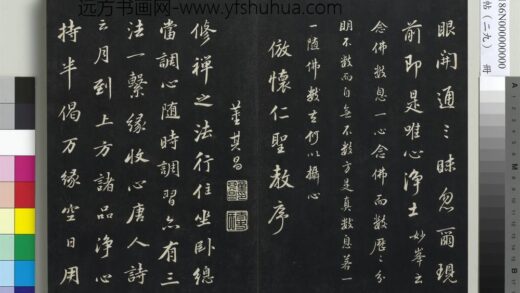 远方书画网-www.yfshuhua.com
86N000000000
帖（二九） 册
眼開通〻昧忽爾現
前即是唯心淨土 妙峯云
念佛數息一心念佛而數歷〻分
明不數而自無不數方是真數息若一
一隨佛數去何以攝心
倣懷仁聖教序
董其昌
修禪之法行住坐卧總
當調心隨時調習亦有三
法一繫緣收心唐人詩
云月到上方諸品淨心
持半偈万緣空日用